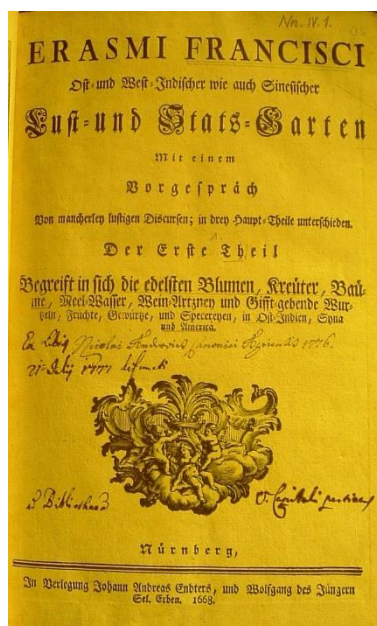 Nn. IV. 1.
ERASMI FRANCISCI
Ost- und West-Indischer wie auch Sinesischer
Lust- und Stats-Garten
Mit einem
Vorgespräch
Von mancherley lustigen Discursen; in drey Haupt-Theile unterschieden.
Der Erste Theil
Begreift in sich die edelsten Blumen, Kreüter, Baü-
me, Meel-Wasser, Wein-Artzney und Gifft-gebende Wur-
tzeln, Früchte, Gewürtze, und Specereyen, in Ost-Indien, Syna
und America.
Ex Libris Nicolai canonici 1776.
1777
Bibliotheca Capituli
Nürnberg,
In Verlegung Johann Andreas Endters, und Wolfgang des Jüngern
Sel. Erben. 1668.